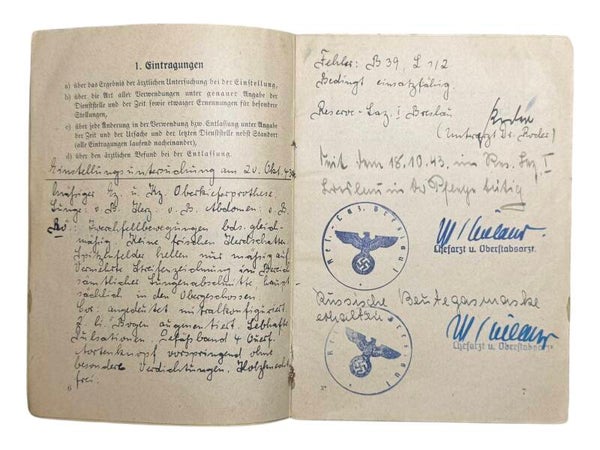 1. Eintragungen
a) über das Ergebnis der ärztlichen Untersuchung bei der Einstellung,
b) über die Art aller Verwendungen unter genauer Angabe der
Dienststelle und der Zeit sowie etwaiger Ernennungen für besondere
Stellungen,
c) über jede Änderung in der Verwendung bzw. Entlassung unter Angabe
der Zeit und der Ursache und der letzten Dienststelle nebst Standort
(alle Eintragungen laufend nacheinander),
d) über den ärztlichen Befund bei der Entlassung.
Einstellungsuntersuchung am 20. Okt. 43
mäßiger Ez. u. Kz. Oberkieferprothese.
Lunge: o. B. Herz: o. B. Abdomen: o. B.
Rö: Zwerchfellbewegungen bds. gleich-
mäßig. Keine frischen Herdschatten.
Spitzenfelder hellen nur mäßig auf.
Vermehrte Streifenzeichnung im Bereich
sämtlicher Lungenabschnitte haupt-
sächlich in den Obergeschossen.
Cor: angedeutet mitralkonfiguriert.
2. li. Bogen augmentiert. Lebhafte
Pulsationen. Gefäßband 4 Querf.
Aortenknopf vorspringend ohne
besondere Verdichtungen. Holzknechtr.
frei.
6
Fehler: B 39, L 1/2
Bedingt einsatzfähig
Reserve-Laz. I Breslau
(Unterarzt Dr. Roder)
Seit dem 18.10.43 im Res. Laz. I
Breslau in der Pflege tätig
Res.-Laz. I Breslau
Chefarzt u. Oberstabsarzt.
Russische Beutegasmaske
erhalten
Res.-Laz. I Breslau
Chefarzt u. Oberstabsarzt.
7